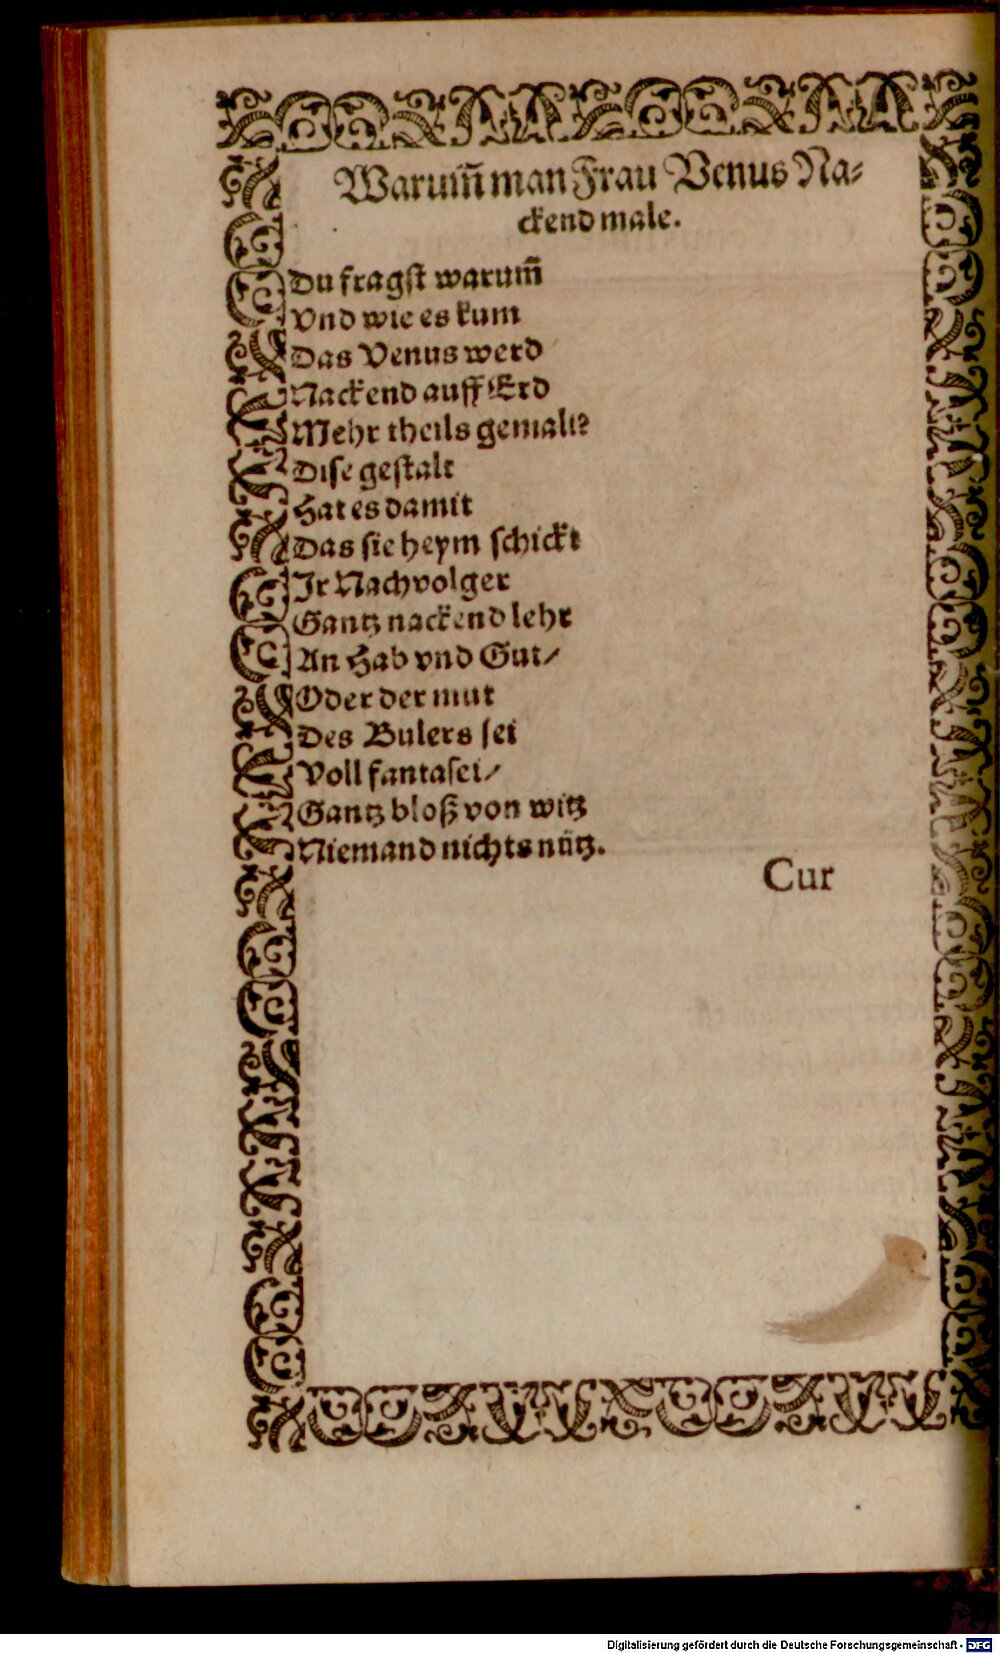 Warum̃ man Frau Venus Na⸗
ckend male.
Du fragst warum̃
Vnd wie es kum
Das Venus werd
Nackend auff Erd
Mehr theils gemalt?
Dise gestalt
Hat es damit
Das sie heym schickt
Ir Nachvolger
Gantz nackend lehr
An Hab vnd Gut/
Oder der mut
Des Bulers sei
Voll fantasei/
Gantz bloß von witz
Niemand nichts nütz.
Cur
Digitalisierung gefördert durch die Deutsche Forschungsgemeinschaft - DFG